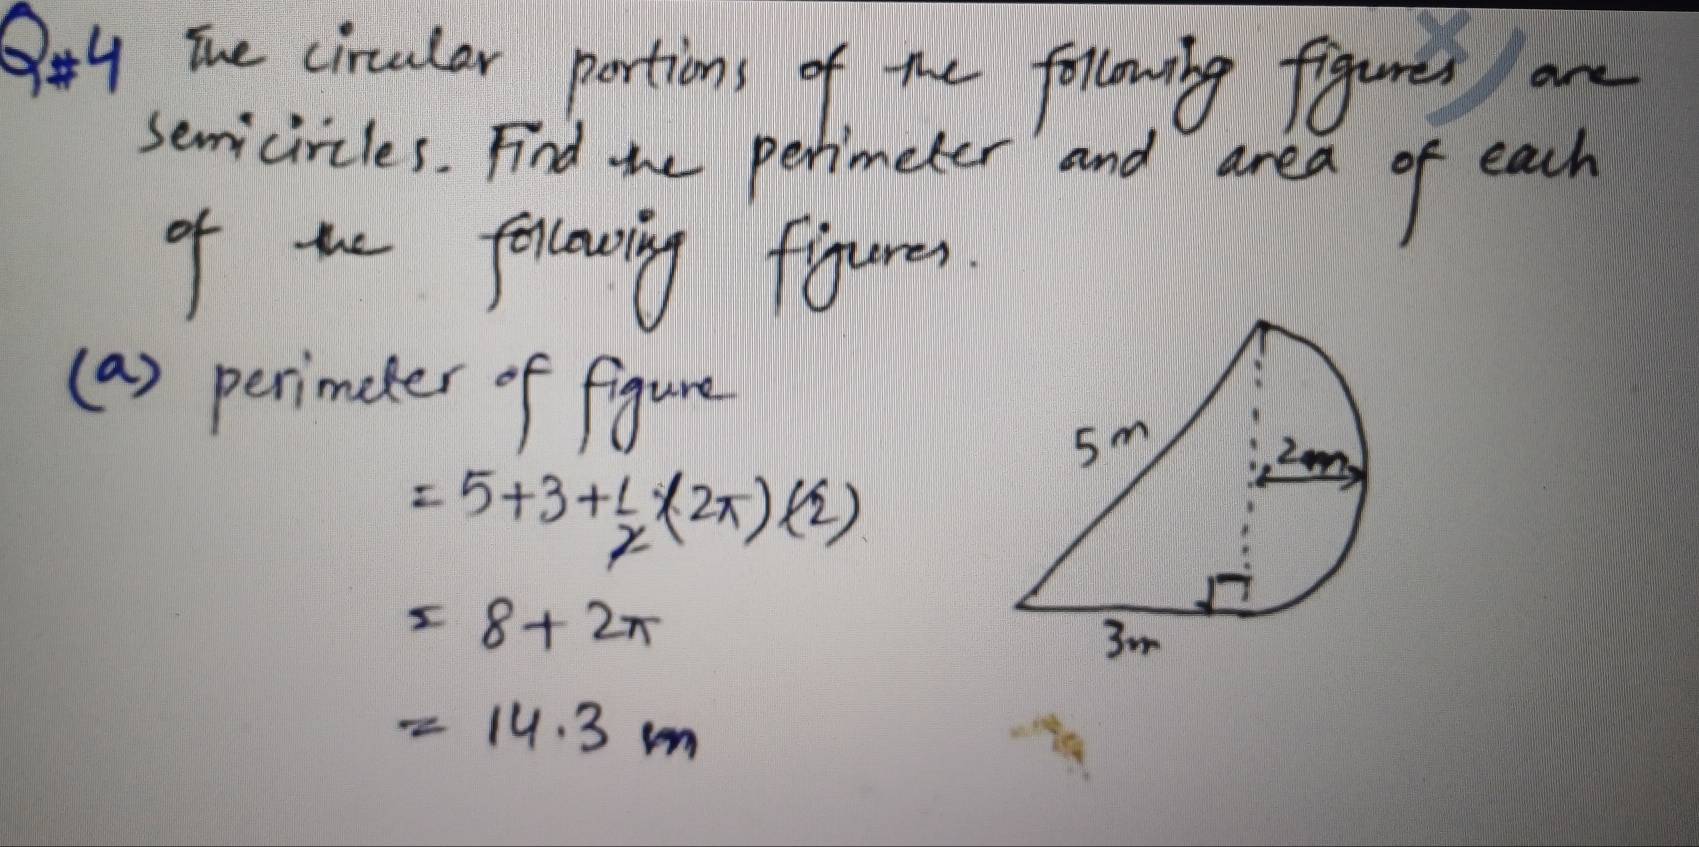 Q#4 The circular portions of the following figures are
semicircles. Find the perimeter and area of each
of the following figures.
(a) perimeter of figure
= 5+3+1/2×(2π)(2)
= 8+2π
= 14.3 m
5m
2m
3m